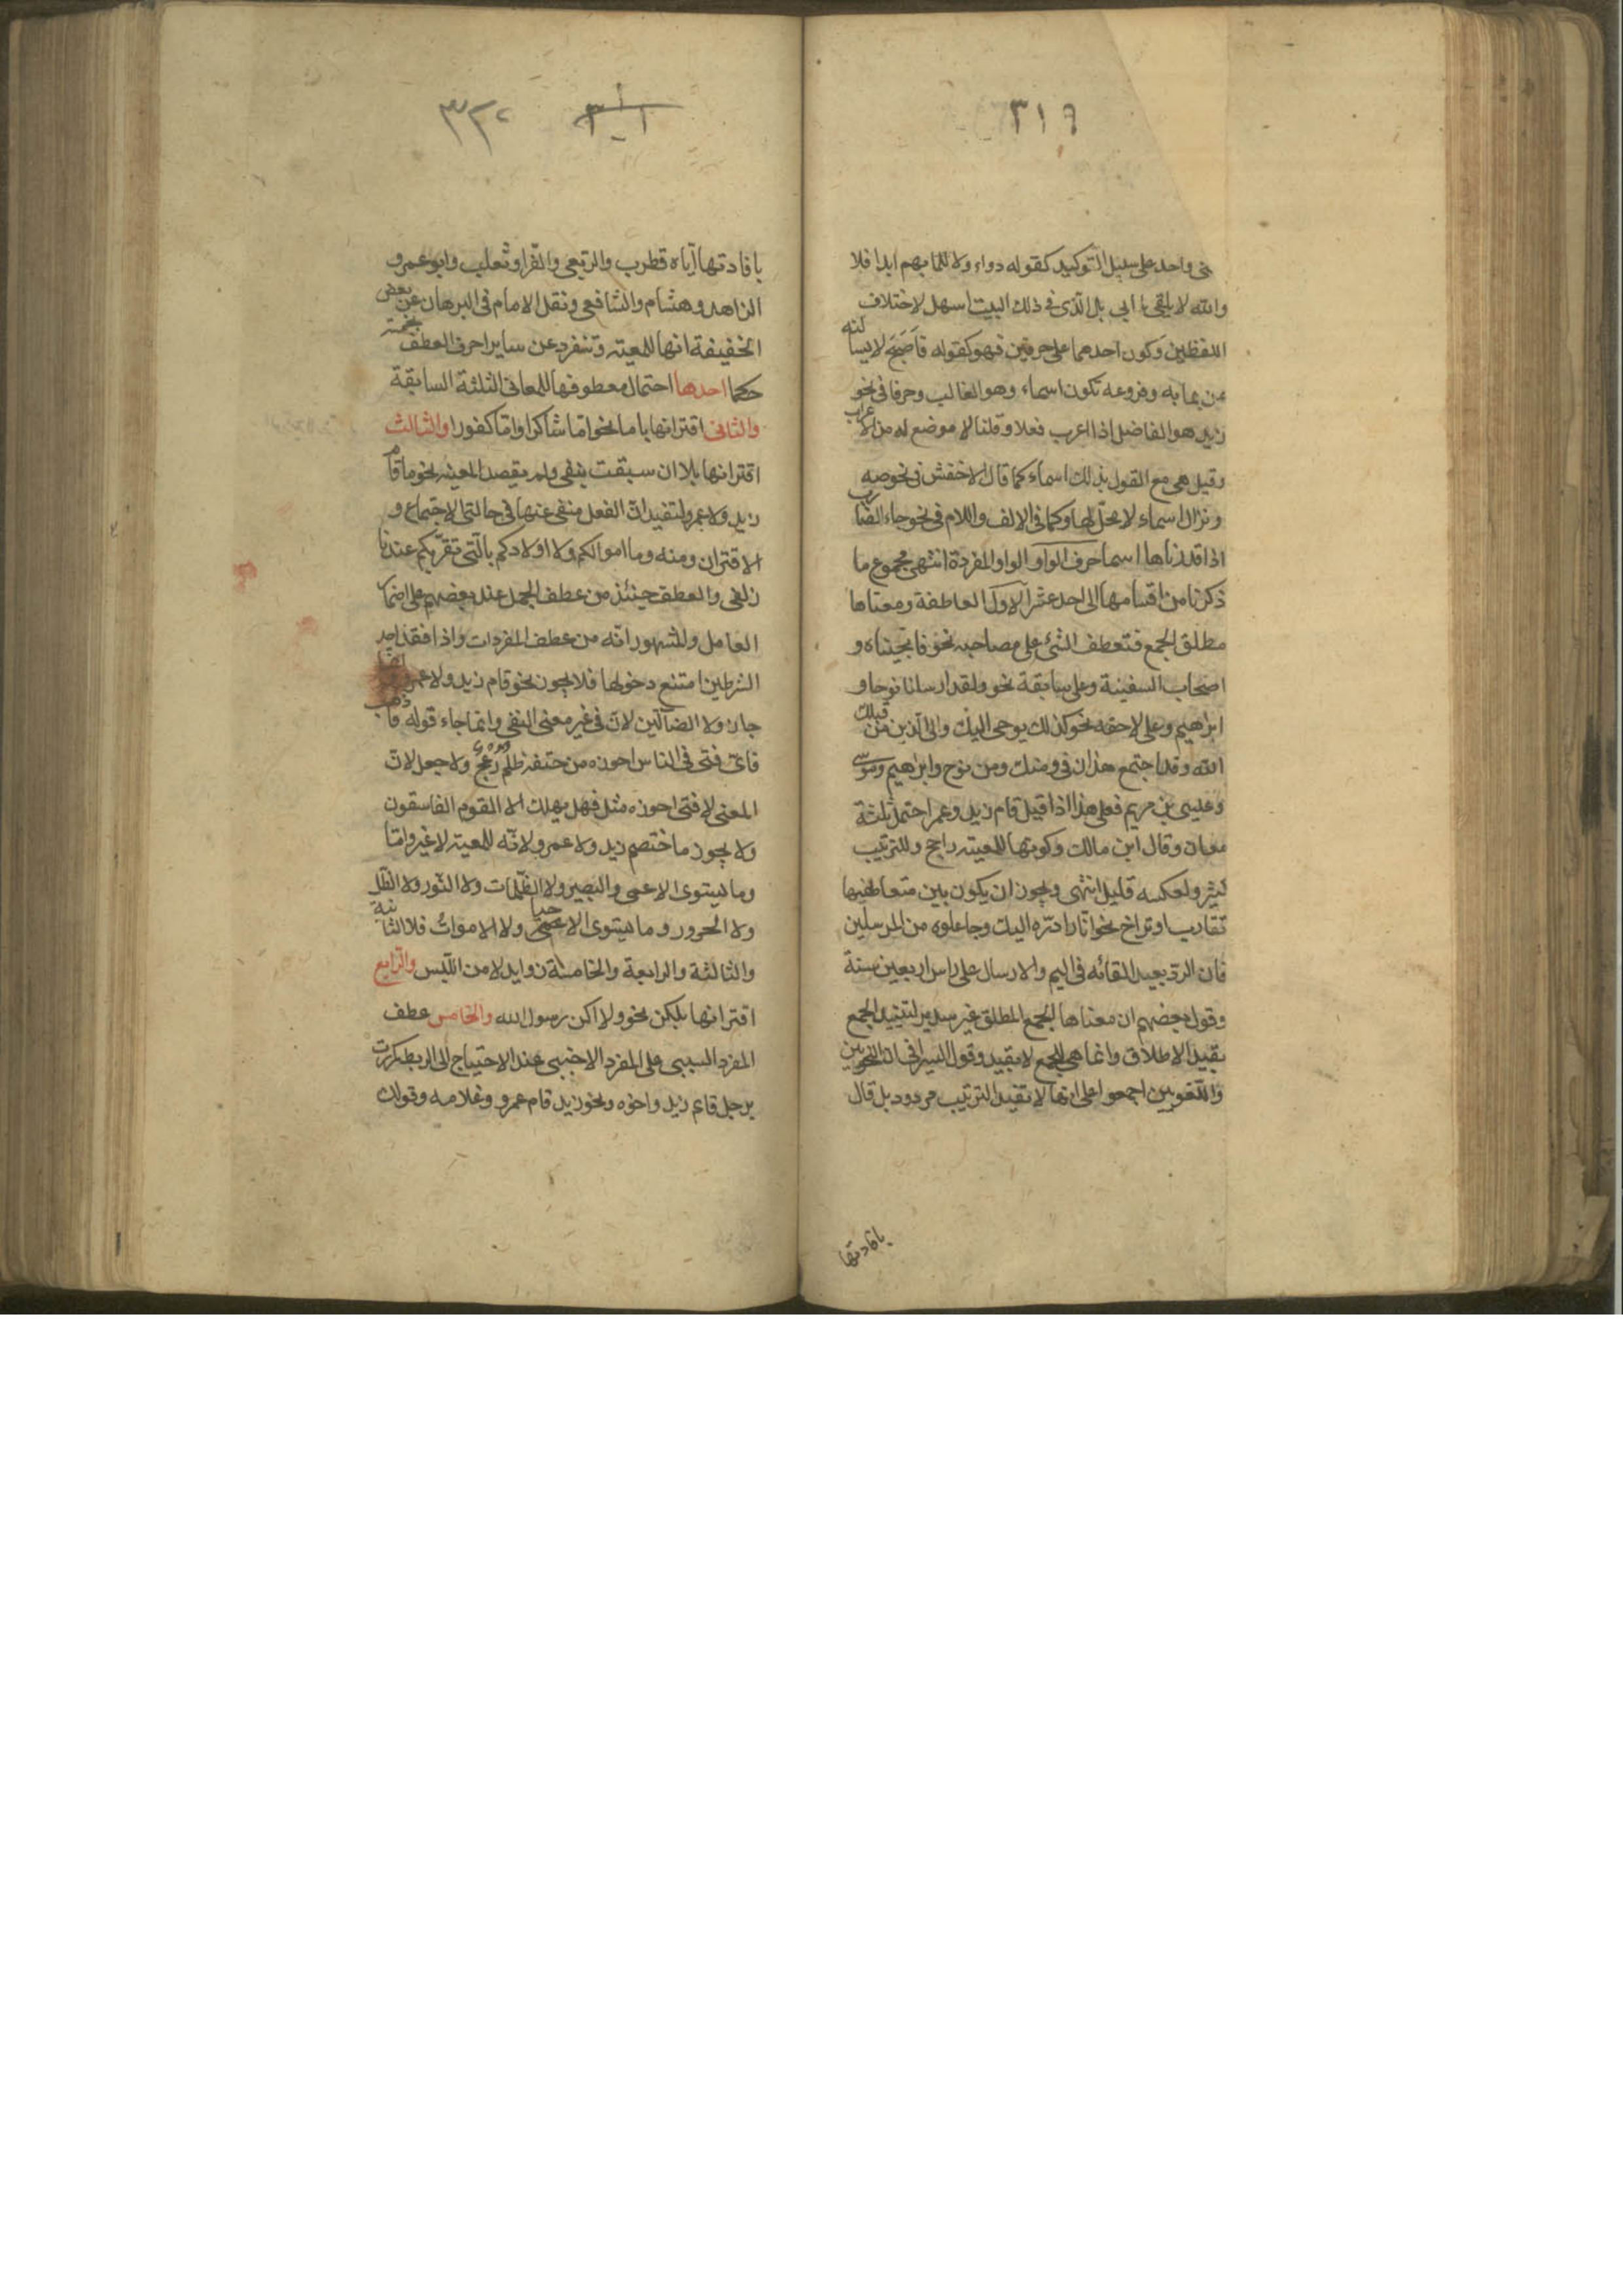 ٣١٩
نى واحد على سبيل التوكيد كقوله دواء ولا للما بهم ابدا فلا
والله لا يلقى ما ابي بل الذى فى ذلك البيت اسهل لاختلاف
اللفظين وكون احدهما على حرفين فهو كقوله فاصبحَ لا يسالنه
عن بما به وفروعه تكون اسماء وهو الغالب وحرفا فى نحو
زيد هو الفاضل اذا اعرب فعلا وقلنا لا موضع له من الاعراب
وقيل هى مع القول بذلك اسماء كما قال الاخفش فى نحو صه
ونزال اسماء لا محل لها وكما فى الالف واللام فى نحو جاء الضارب
اذا قدرناها اسما حرف الواو الواو المفردة انتهى مجموع ما
ذكرنا من اقسامها الى احد عشر الاول العاطفة ومعناها
مطلق الجمع فتعطف الشئ على مصاحبه نحو فانجيناه و
اصحاب السفينة وعلى سابقة نحو ولقد ارسلنا نوحا و
ابراهيم وعلى لاحقه نحو كذلك يوحى اليك والى الذين من قبلك
الله وقد اجتمع هذان فى ومنك ومن نوح وابراهيم وموسى
وعليسى بن مريم فعلى هذا اذا قيل قام زيد وعمرا احتمل ثلثة
معان وقال ابن مالك وكونها للمعيته راجح وللترتيب
كثير ولعكسه قليل انتهى ويجوز ان يكون بين متعاطفيها
تقارب او تراخ نحو انّا رادّره اليك وجاعلوه من المرسلين
فان الردّ بعيد القائه فى اليم والارسال على راس اربعين سنة
وقول بعضهم ان معناها الجمع المطلق غير سديد لتقييد الجمع
بقيد الاطلاق وانما هى للجمع لا بقيد وقول السيرافى ان النحويين
واللّغويين اجمعوا على انها لا تفيد الترتيب مردود بل قال
بافادتها
٣٣٢
بافادتها اياه قطرب والرّبعى والفّرا وثعلب وابو عمرو
الزاهد وهشام والشافعى ونقل الامام فى البرهان عن بعض
الخفيفة انها للمعيته وتنفرد عن ساير احرف العطف بخمسة
حكما احدها احتمال معطوفها للمعانى الثلثة السابقة
والثانى اقترانها باما نحو امّا شاكرا وامّا كفورا والثالث
اقترانها بلا ان سبقت بنفى ولم يقصد المعيته نحو ما قام
زيد ولا عمرو لتفيد ان الفعل منفى عنها فى حالتى الاجتماع و
الاقتران ومنه وما اموالكم ولا اولادكم بالّتى تقرّبكم عندنا
زلفى والعطف حينئذ من عطف الجمل عند بعضهم على اضمار
العامل والمشهور انّه من عطف المفردات واذا فقد احد
الشرطين امتنع دخولها فلا يجوز نحو قام زيد ولا عمرو
جاز ولا الضالّين لانّ فى غير معنى النفى وانما جاء قوله فاذهب
فاىّ فتى فى الناس احرزه من حتفه ظلم دعج ولا جعل لانّ
المعنى لا فتى احرزه مثل فهل يهلك الا القوم الفاسقون
ولا يجوز ما اختصم زيد ولا عمرو لانّه للمعيته لا غير وامّا
وما ليستوى الاعمى والبصير ولا الظّلمات ولا النّور ولا الظّل
ولا الحرور وما ليستوى الاحيا ولا الاموات فلا الثانية
والثالثة والرابعة والخامسة زوايد لا من اللّبس والرّابع
اقترانها بلكن نحو ولاكن رسول الله والخامس عطف
المفرد السببى على المفرد الاجنبى عند الاحتياج الى الربط كررت
برجل قائم زيد واخوه ونحو زيد قام عمرو وغلامه وقولك